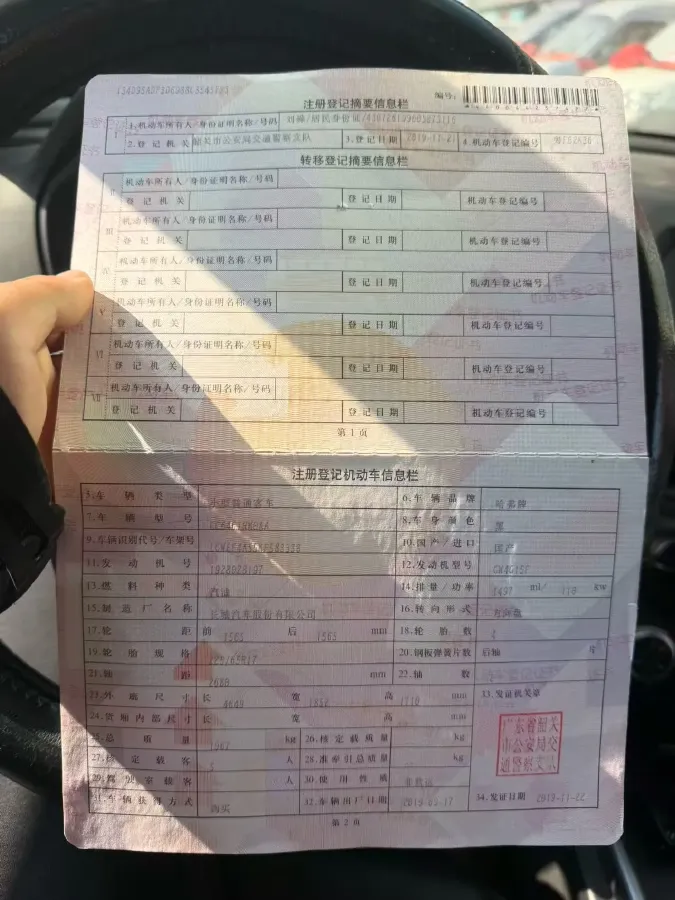 注册登记摘要信息栏
编号:
1.机动车所有人/身份证明名称/号码 /居民身份证/
2.登记机关 韶关市公安局交通警察支队 3.登记日期 2019-11-21 4.机动车登记编号
转移登记摘要信息栏
机动车所有人/身份证明名称/号码
登记机关 登记日期 机动车登记编号
机动车所有人/身份证明名称/号码
登记机关 登记日期 机动车登记编号
机动车所有人/身份证明名称/号码
登记机关 登记日期 机动车登记编号
V 机动车所有人/身份证明名称/号码
登记机关 登记日期 机动车登记编号
VI 机动车所有人/身份证明名称/号码
登记机关 登记日期 机动车登记编号
VII 机动车所有人/身份证明名称/号码
登记机关 登记日期 机动车登记编号
第1页
注册登记机动车信息栏
5.车辆类型 小型普通客车 6.车辆品牌 哈弗牌
7.车辆型号 8.车身颜色 黑
9.车辆识别代号/车架号 10.国产/进口 国产
11.发动机号 12.发动机型号 GW4G15F
13.燃料种类 汽油 14.排量/功率 1497 ml/ 110 kw
15.制造厂名称 长城汽车股份有限公司 16.转向形式 方向盘
17.轮距 前 1565 后 1565 mm 18.轮胎数 4
19.轮胎规格 20.钢板弹簧片数 后轴 片
21.轴距 2680 mm 22.轴数
23.外廓尺寸 长 4649 宽 高 1710 mm 33.发证机关章
24.货厢内部尺寸 长 宽 高 mm
25.总质量 kg 26.核定载质量 kg
27.核定载客 5 人 28.准牵引总质量 kg
29.驾驶室载客 人 30.使用性质 非营运
31.车辆获得方式 购买 32.车辆出厂日期 34.发证日期 2019-11-22
广东省韶关
市公安局交
通警察支队
第2页